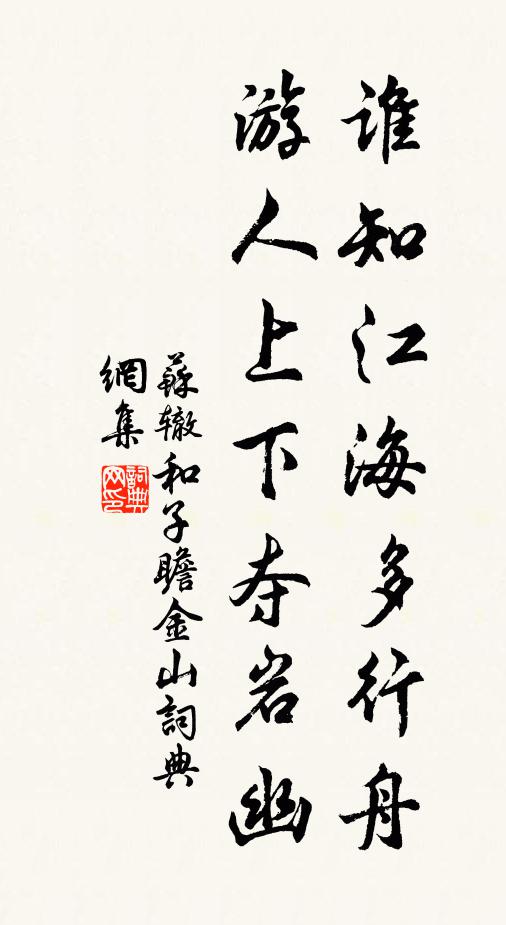 誰知江海多行舟
游人上下夺岩幽
蘇辙和子瞻金山詞典
網集
詞典网印